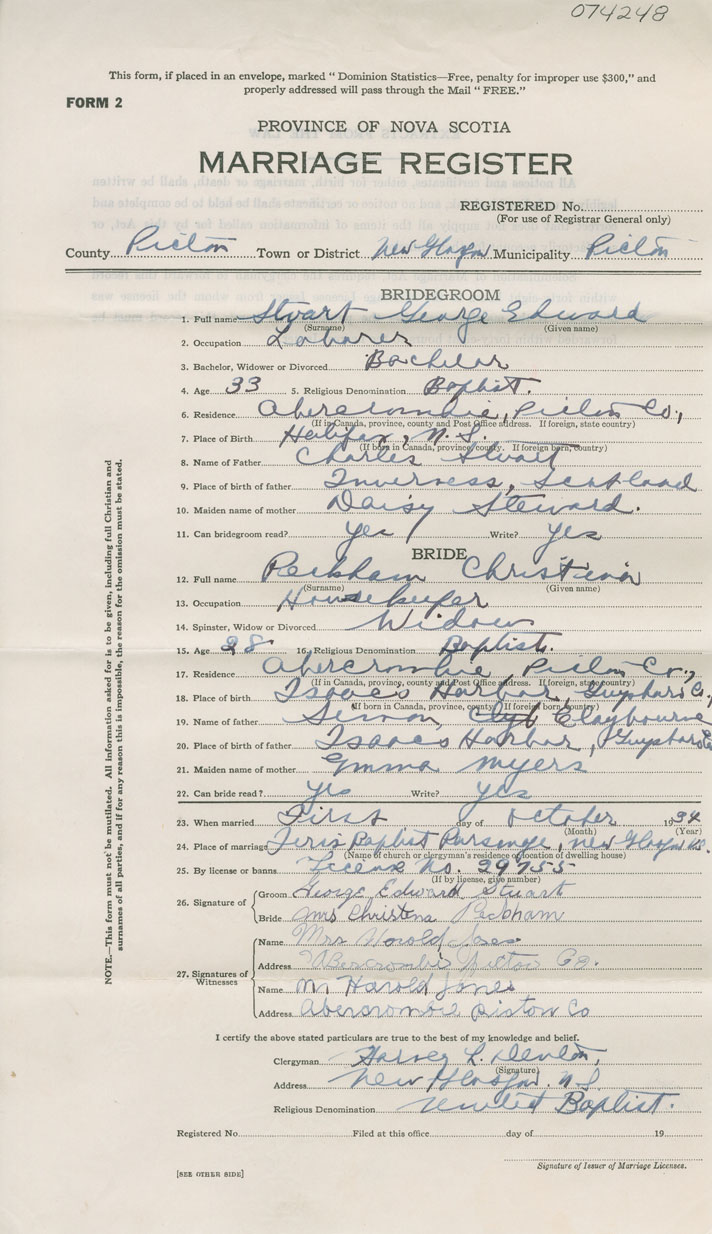 074248
This form, if placed in an envelope, marked “ Dominion Statistics—Free, penalty for improper use $300,” and
properly addressed will pass through the Mail “ FREE.”
FORM 2
PROVINCE OF NOVA SCOTIA
MARRIAGE REGISTER
REGISTERED No.
(For use of Registrar General only)
County Pictou Town or District New Glasgow Municipality Pictou
BRIDEGROOM
1. Full name Stuart George Edward
(Surname) (Given name)
2. Occupation Laborer
3. Bachelor, Widower or Divorced Bachelor
4. Age 33 5. Religious Denomination Baptist.
6. Residence Abercrombie, Pictou Co.,
(If in Canada, province, county and Post Office address. If foreign, state country)
7. Place of Birth Halifax, N.S.
(If born in Canada, province, county. If foreign born, country)
8. Name of Father Charles Stuart
9. Place of birth of father Inverness, Scotland
10. Maiden name of mother Daisy Steward.
11. Can bridegroom read? yes Write? yes
BRIDE
12. Full name Peckham Christina
(Surname) (Given name)
13. Occupation Housekeeper
14. Spinster, Widow or Divorced Widow
15. Age 28 16. Religious Denomination Baptist.
17. Residence Abercrombie, Pictou Co.,
(If in Canada, province, county and Post Office address. If foreign, state country)
18. Place of birth Isaacs Harbor, Guysboro Co.,
(If born in Canada, province, county. If foreign born, country)
19. Name of father Simon Claybourne
20. Place of birth of father Isaacs Harbor, Guysboro Co
21. Maiden name of mother Emma Myers
22. Can bride read? yes Write? yes
23. When married First day of October 1934
(Month) (Year)
24. Place of marriage Baptist Parsonage, New Glasgow N.S.
(Name of church or clergyman's residence or location of dwelling house)
25. By license or banns License No. 29755
(If by license, give number)
26. Signature of Groom George Edward Stuart
Bride Mrs Christena Peckham
27. Signatures of Witnesses Name Mrs Harold Jones
Address Abercrombie Pictou Co.
Name Mr Harold Jones
Address Abercrombie Pictou Co
I certify the above stated particulars are true to the best of my knowledge and belief.
Clergyman Harvey L. Denton,
(Signature)
Address New Glasgow. N.S.
Religious Denomination United Baptist.
Registered No. Filed at this office day of 19
Signature of Issuer of Marriage Licenses.
[SEE OTHER SIDE]
NOTE.—This form must not be mutilated. All information asked for is to be given, including full Christian and
surnames of all parties, and if for any reason this is impossible, the reason for the omission must be stated.